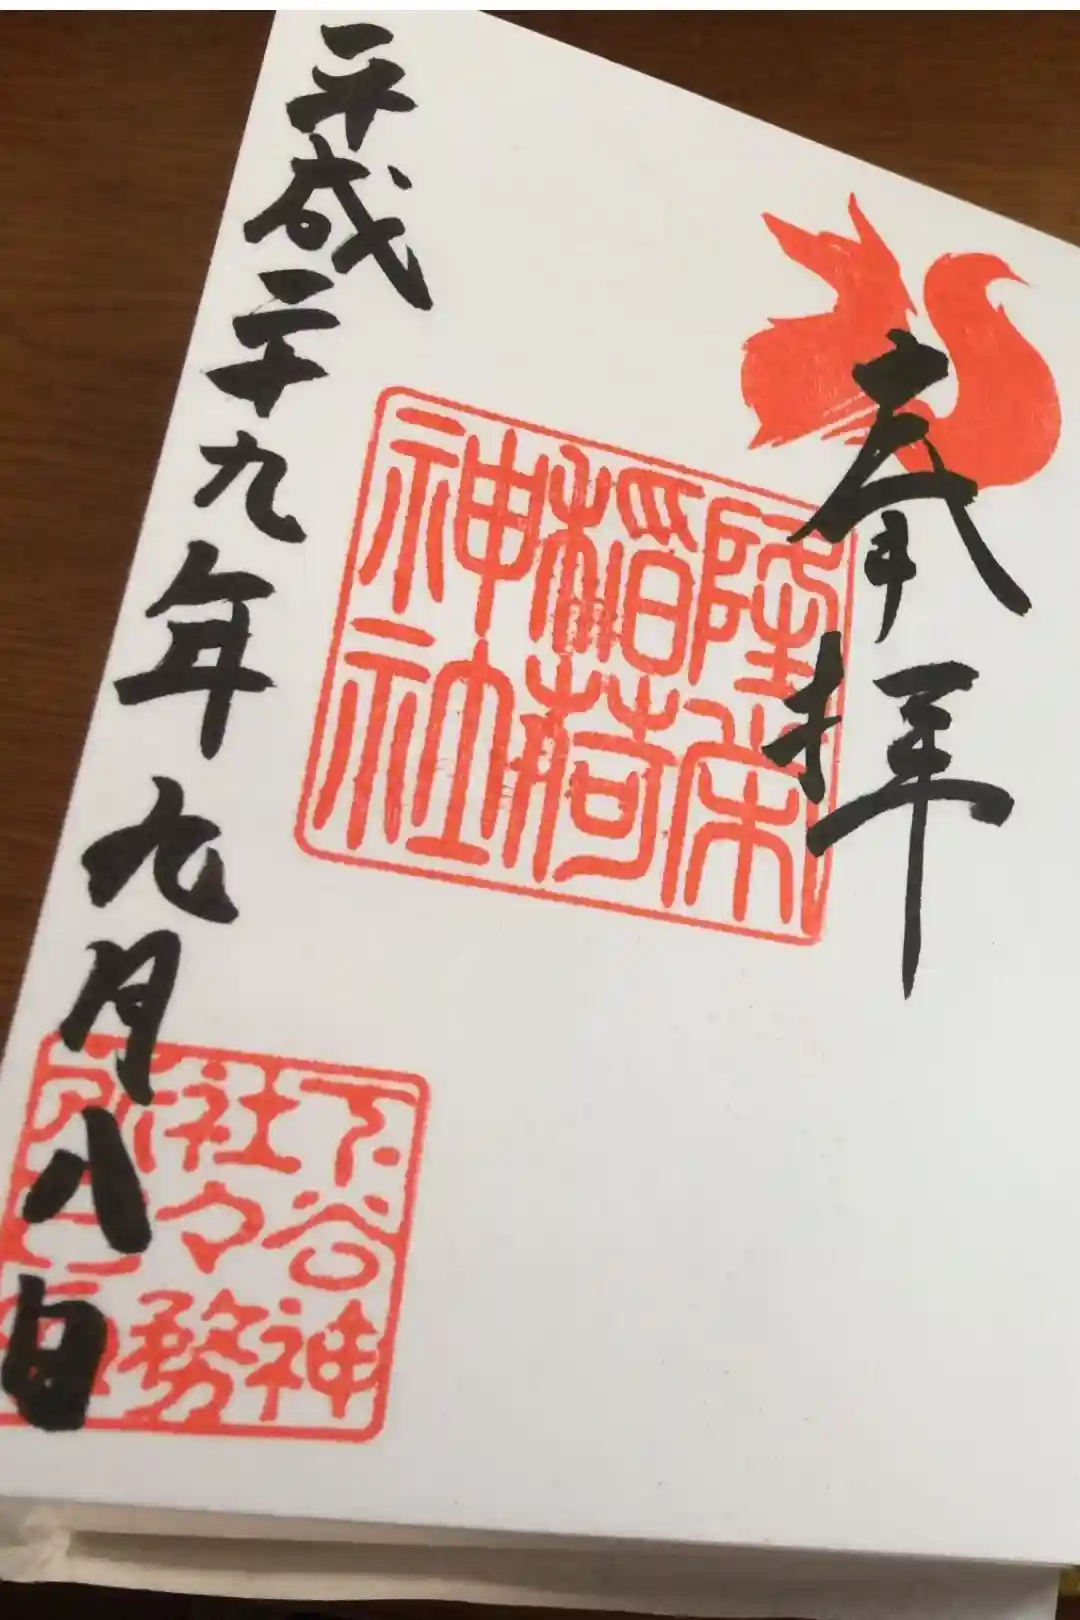 奉拝
隆栄
稲荷
神社
平成二十九年九月八日
下谷神
社々務
所之印